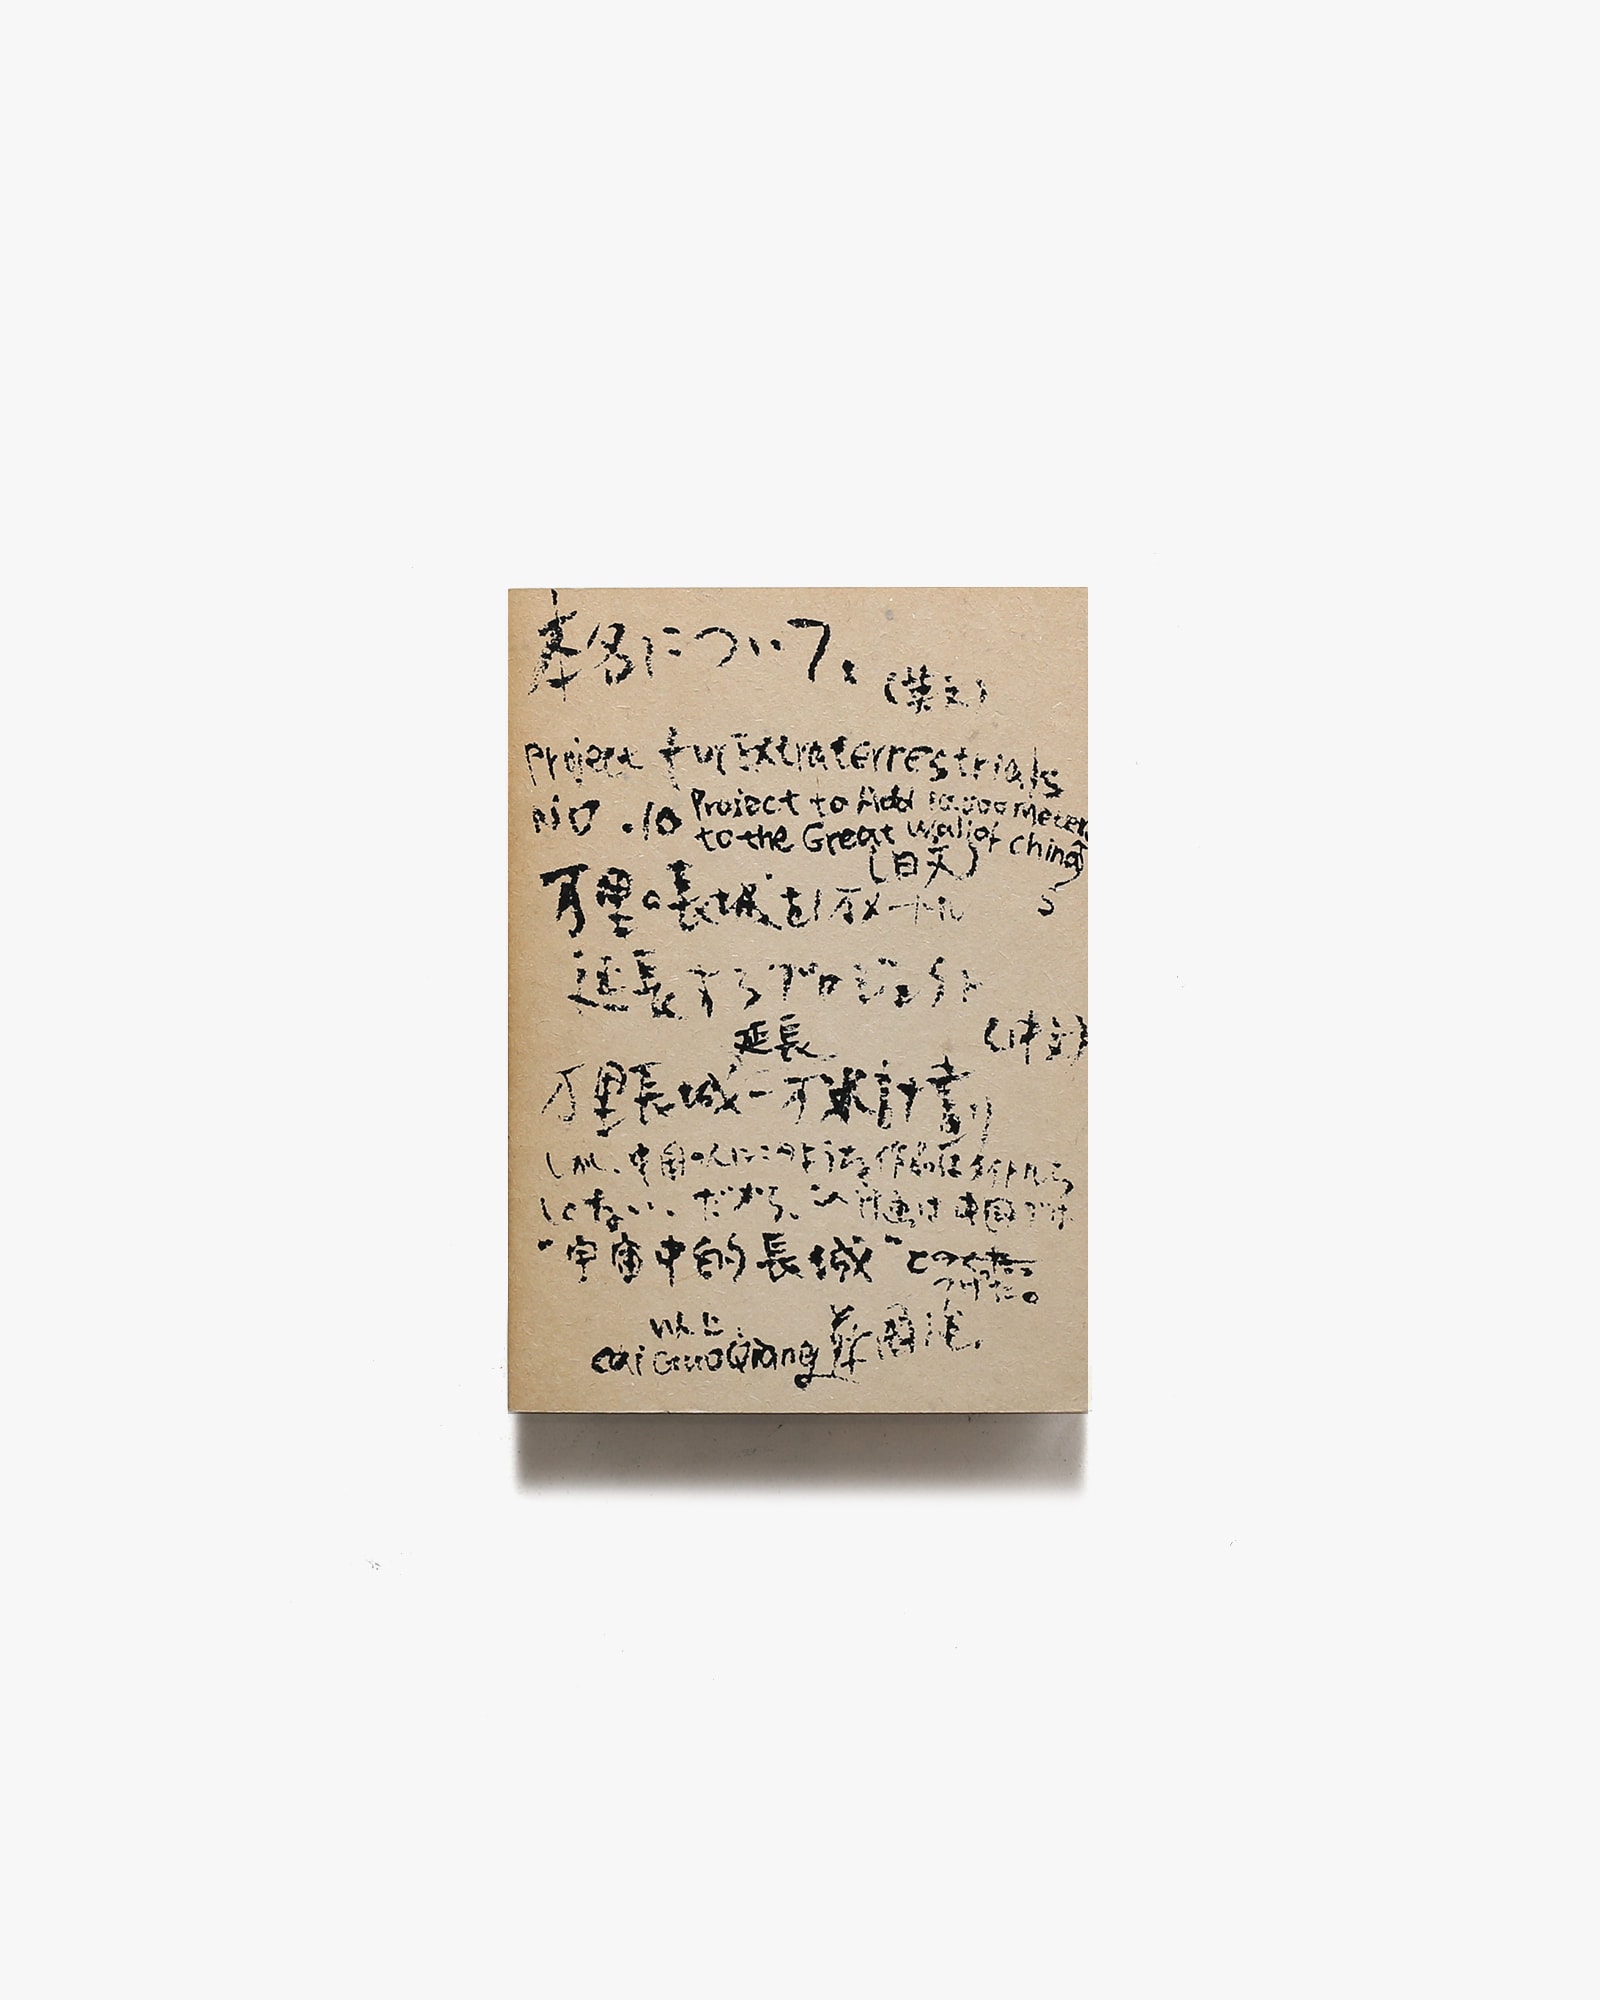 本名について、
(英文)
Project for Extraterrestrials
NO.10 Project to Add 10.000 Meters
to the Great Wall of China
(日文)
万里の長城を1万メートル
延長するプロジェクト
延長 (中文)
万里長城一万米計劃
しかし、中国の人はこのような作品はタイトルら
しくない、だから、この計画は中国では
"宇宙中的長城"との
つけた。
以上、
Cai Guo Qiang 蔡國強